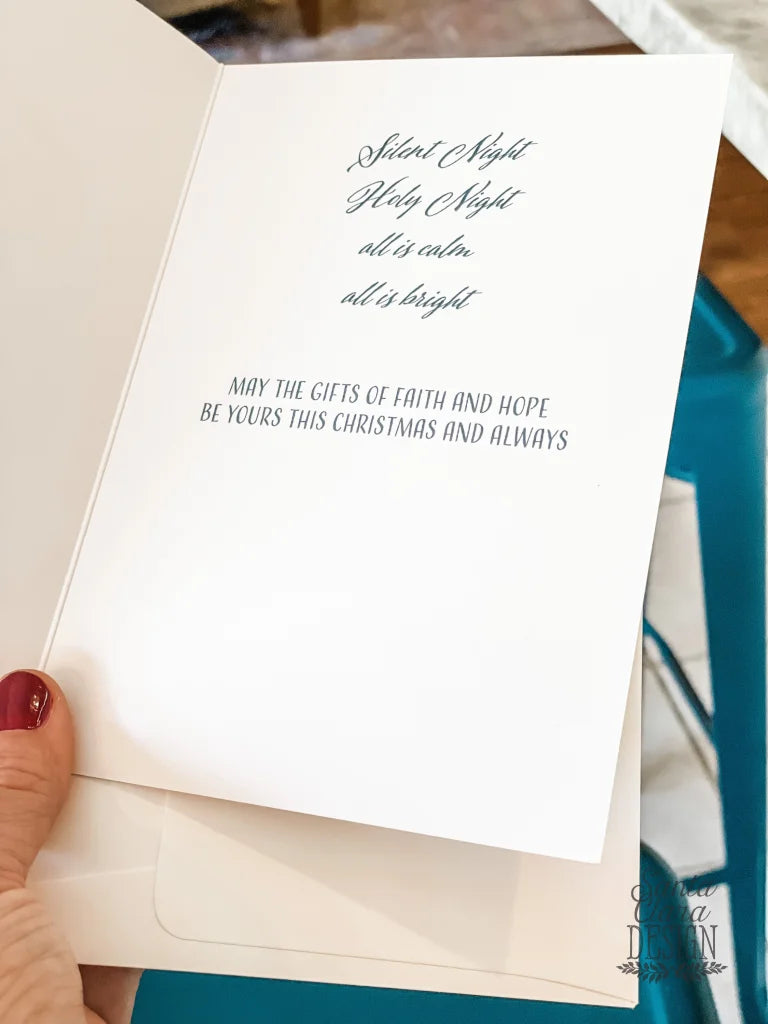 Silent Night
Holy Night
all is calm
all is bright
MAY THE GIFTS OF FAITH AND HOPE
BE YOURS THIS CHRISTMAS AND ALWAYS
Santa
Clara
DESIGN